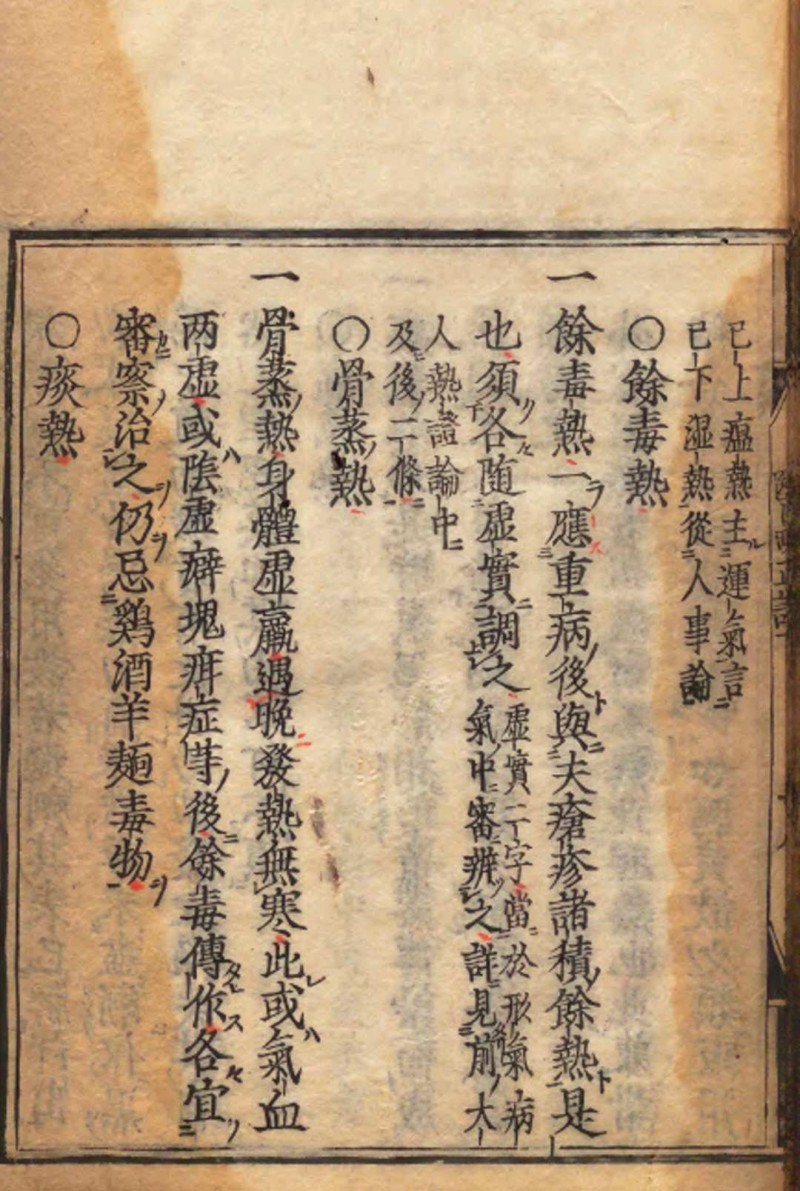 已上瘟熱主運氣言
已下濕熱從人事論
○餘毒熱
一餘毒熱一應重病後與夫瘡疹諸積餘熱是
也須各随虛實調之虛實二字當於形氣病
氣中審辨之詳見前大
人熱證論中
及後二條
○骨蒸熱
一骨蒸熱身體虛羸遇晚發熱無寒此或氣血
两虛或陰虛癖塊疳症䓁後餘毒傳作各宜
審察治之仍忌鷄酒羊麺毒物
○痰熱